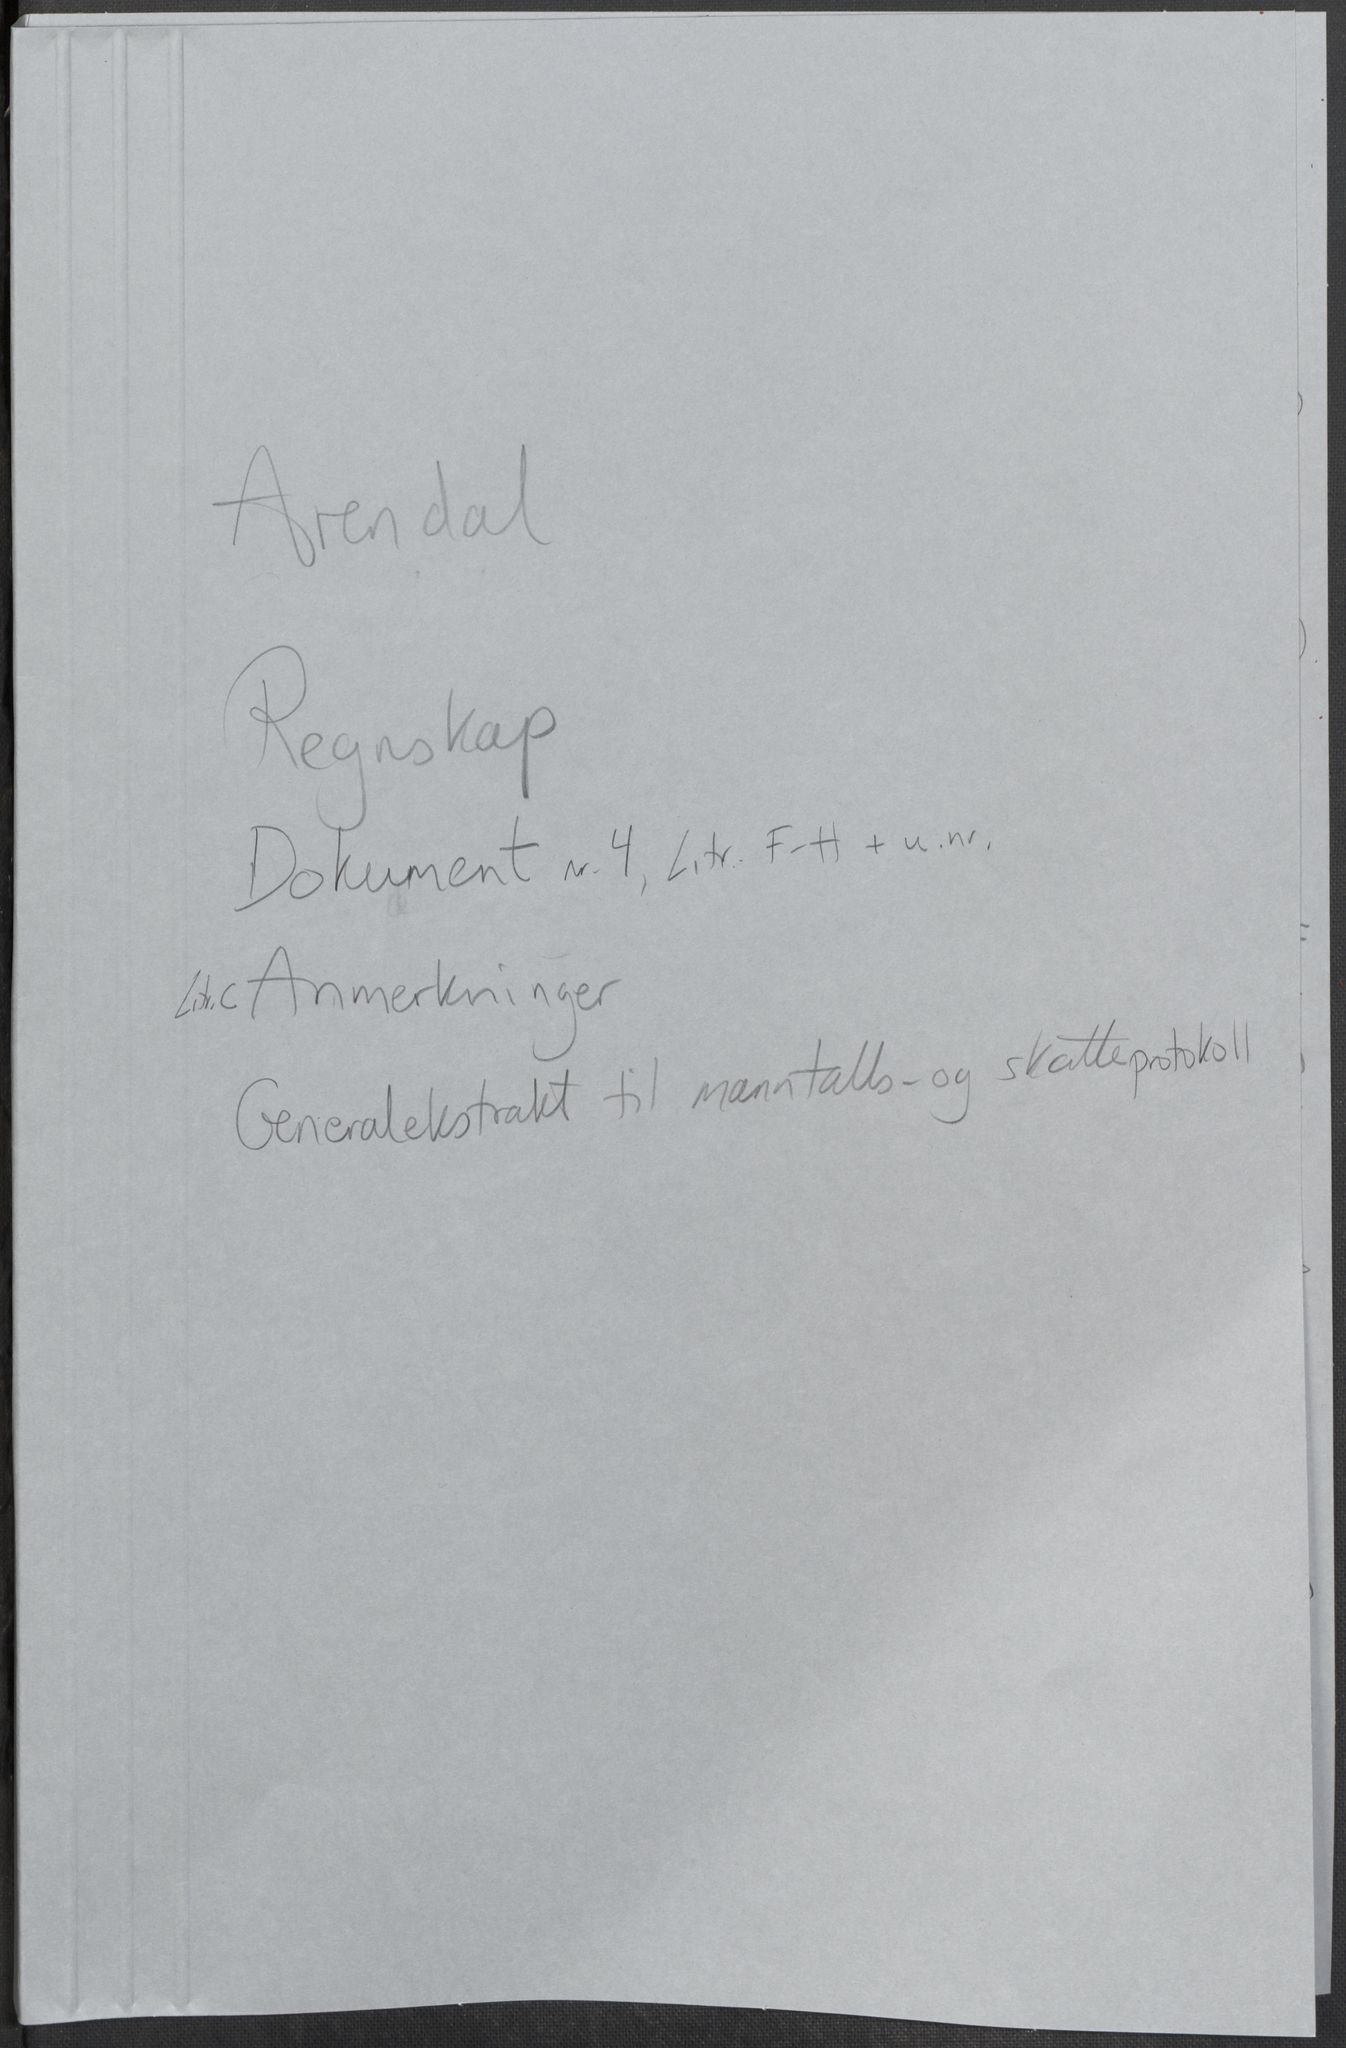 Arendal
Regnskap
Dokument nr. 4, Litr. F-H + u.nr.
Litr. C Anmerkninger
Generalekstrakt til manntalls- og skatteprotokoll